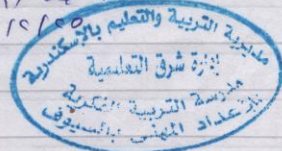 ١٢/٢٥
مديرية التربية والتعليم بالإسكندرية
إدارة شرق التعليمية
مدرسة التربية الفكرية
والإعداد المهنى بالسيوف